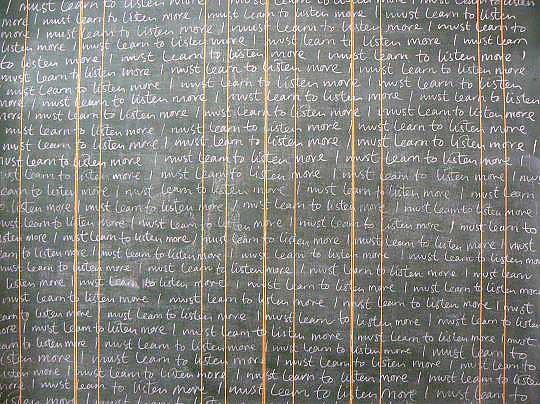 I must learn to listen more I must learn to listen more I must learn to listen
more I must learn to listen more I must learn to listen more I must learn to
listen more I must learn to listen more I must learn to listen more I must learn
to listen more I must learn to listen more I must learn to listen more I
must learn to listen more I must learn to listen more I must learn to listen
more I must learn to listen more I must learn to listen more I must learn to listen
more I must learn to listen more I must learn to listen more I must learn to listen
more I must learn to listen more I must learn to listen more I must learn to
must learn to listen more I must learn to listen more I must learn to listen more
must learn to listen more I must learn to listen more I must learn to listen more I
must learn to listen more I must learn to listen more I must learn to listen more I
must learn to listen more I must learn to listen more I must learn to listen more I must
learn to listen more I must learn to listen more I must learn to listen more I must
to listen more I must learn to listen more I must learn to listen more I must learn to listen more
I must learn to listen more I must learn to listen more I must learn to listen more I must learn to
listen more I must learn to listen more I must learn to listen more I must learn to listen more I must
learn to listen more I must learn to listen more I must learn to listen more I must learn to listen more
must learn to listen more I must learn to listen more I must learn to listen more I must learn
listen more I must learn to listen more I must learn to listen more I must learn to listen
learn to listen more I must learn to listen more I must learn to listen more I must
listen more I must learn to listen more I must learn to listen more I must learn to listen
more I must learn to listen more I must learn to listen more I must learn to listen more
learn to listen more I must learn to listen more I must learn to listen more I must learn to
listen more I must learn to listen more I must learn to listen more I must learn to listen
more I must learn to listen more I must learn to listen more I must learn to listen
more I must learn to listen more I must learn to listen more I must learn to